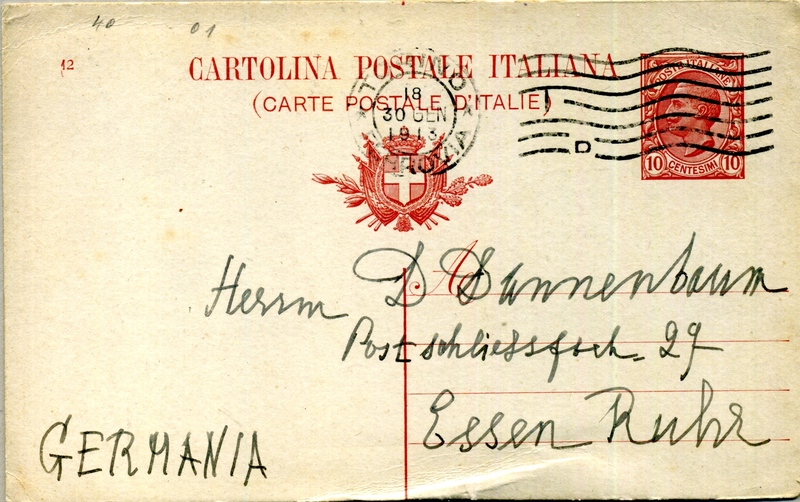 40 01
12
CARTOLINA POSTALE ITALIANA
(CARTE POSTALE D'ITALIE)
TORINO
18
30 GEN
1913
FERROVIA
D
POSTE ITALIANE
10 CENTESIMI 10
A
Herrn D Dannenbaum
Postschliessfach 27
Essen Ruhr
GERMANIA